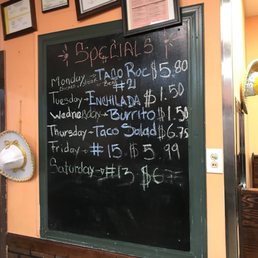 SPECIALS
Monday - TACO ROC $5.80
#21
Tuesday - ENCHILADA $1.50
Wednesday - Burrito $1.50
Thursday - Taco Salad $6.75
Friday - #15. $5.99
Saturday - #13 $6